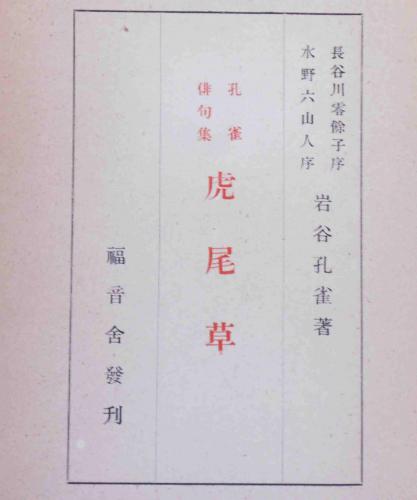 長谷川零餘子序
水野六山人序
岩谷孔雀著
孔雀
俳句集
虎尾草
福音舍發刊